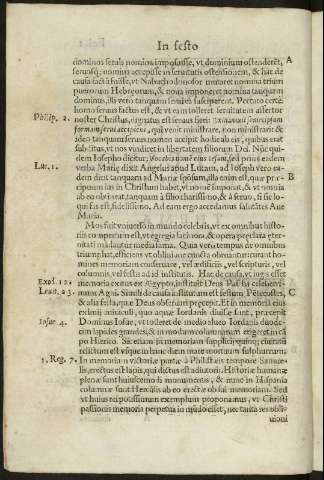 In festo
dominos seruis nomina imposuisse, vt dominium ostenderēt, A
seruosq; nomina accepisse in seruitutis ostensionem, & hac de
causa factū fuisse, vt Nabuchodonosor mutaret nomina trium
puerorum Hebręorum, & noua imponeret nomina tanquam
dominus, illi vero tanquam serui ea susciperent. Peccato certe
homo seruus factus est, & vt eam tolleret seruitutem assertor
Philip. 2. noster Christus, dignatus est seruus fieri: Exinaniuit semetipsum
formam serui accipiens, qui venit ministrare, non ministrari: &
ideo tanquam seruus nomen accipit hodie ab eis, quibus erat
subditus, vt nos vindicet in libertatem filiorum Dei. Nec quidem
Iosepho dicitur; Vocabis nomē eius Iesum, sed prius eadem
Luc. 1. verba Marię dixit Angelus apud Lucam, ad Ioseph vero eadem
dixit tanquam ad Marię sponsum, illa enim est, quæ precipuum
ius in Christum habet, vt nomē imponat, & vt omnia B
ab eo obseruet, tanquam à filio charissimo, & à seruo, si sic loqui
fas est, fidelissimo. Ad eam ergo accedamus salutātes Aue
Maria.
Mos fuit vniuerso in mundo celebris, vt ex omnibus historiis
comperrum est, vt egregia factionis, & opera præclara æternitati
madantur media fama. Quia vero tempus de omnibus
triumphat, efficiens vt obliuioni cuncta obruantur: curant homines
memoriam conseruare, vel ædificiis, vel scripturis, vel
columnis, vel festis ad id institutis. Hac de causa, vt iugis esset
Exod. 12. memoria exitus ex Ægypto, instituit Deus Paschę celeberrimum
Leuit. 23. Agni. Simili de causa institutum est festum Pētecostes, C
& alia festa, quæ Deus obseruari præcepit. Et in memoriā eius
eximij miraculi, quo aquæ Iordanis diuisæ sunt, præcepit
Iosue 4. Dominus Iosue, vt tolleret de medio alueo Iordanis duodecim
lapides grandes, & in modum columnarum erigeret in cāpo
Hierico. Sic etiam in memoriam supplicij quinq; ciuitatū
relictum est vsque in hanc diem mare mortuum subblarum.
1. Reg. 7. In memoria victoriæ partæ à Philistæis tempore Samuelis,
erectus est lapis, qui dictus est adiutorii. Historiæ humanæ
plenæ sunt huiuscemodi monumentis, & nunc in Hispania
columnæ sunt Herculis ab eo erectæ ob sui memoriam. Sed
vt huius rei potissimum exemplum proponamus, vt Christi
passionis memoria perpetua in mūdo esset, nec tanta res obliuioni